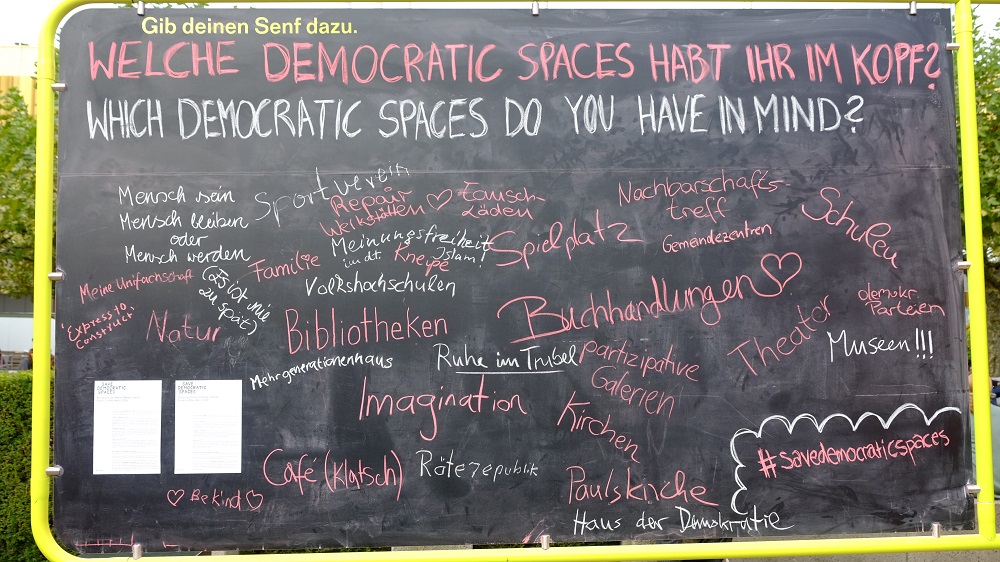 Gib deinen Senf dazu.
WELCHE DEMOCRATIC SPACES HABT IHR IM KOPF?
WHICH DEMOCRATIC SPACES DO YOU HAVE IN MIND?
Mensch sein
Mensch bleiben
oder
Mensch werden
Sportverein
Repair
Werkstätten ♡
Tausch-
Läden
Nachbarschafts-
treff
Schulen
Meinungsfreiheit
im dt. Islam!
Kneipe
Spielplatz
Gemeindezentren
Meine Unifachschaft
(Es ist nie
zu spät)
Familie
Volkshochschulen
Buchhandlungen ♡
demokr
Parteien
"Express to
Construct"
Natur
Bibliotheken
Theater
Museen!!!
Mehrgenerationenhaus
Ruhe im Trubel
partizipative
Galerien
SAVE
DEMOCRATIC
SPACES
SAVE
DEMOCRATIC
SPACES
Imagination
Kirchen
#savedemocraticspaces
Café (Klatsch)
Räterepublik
♡ Be kind ♡
Paulskirche
Haus der Demokratie